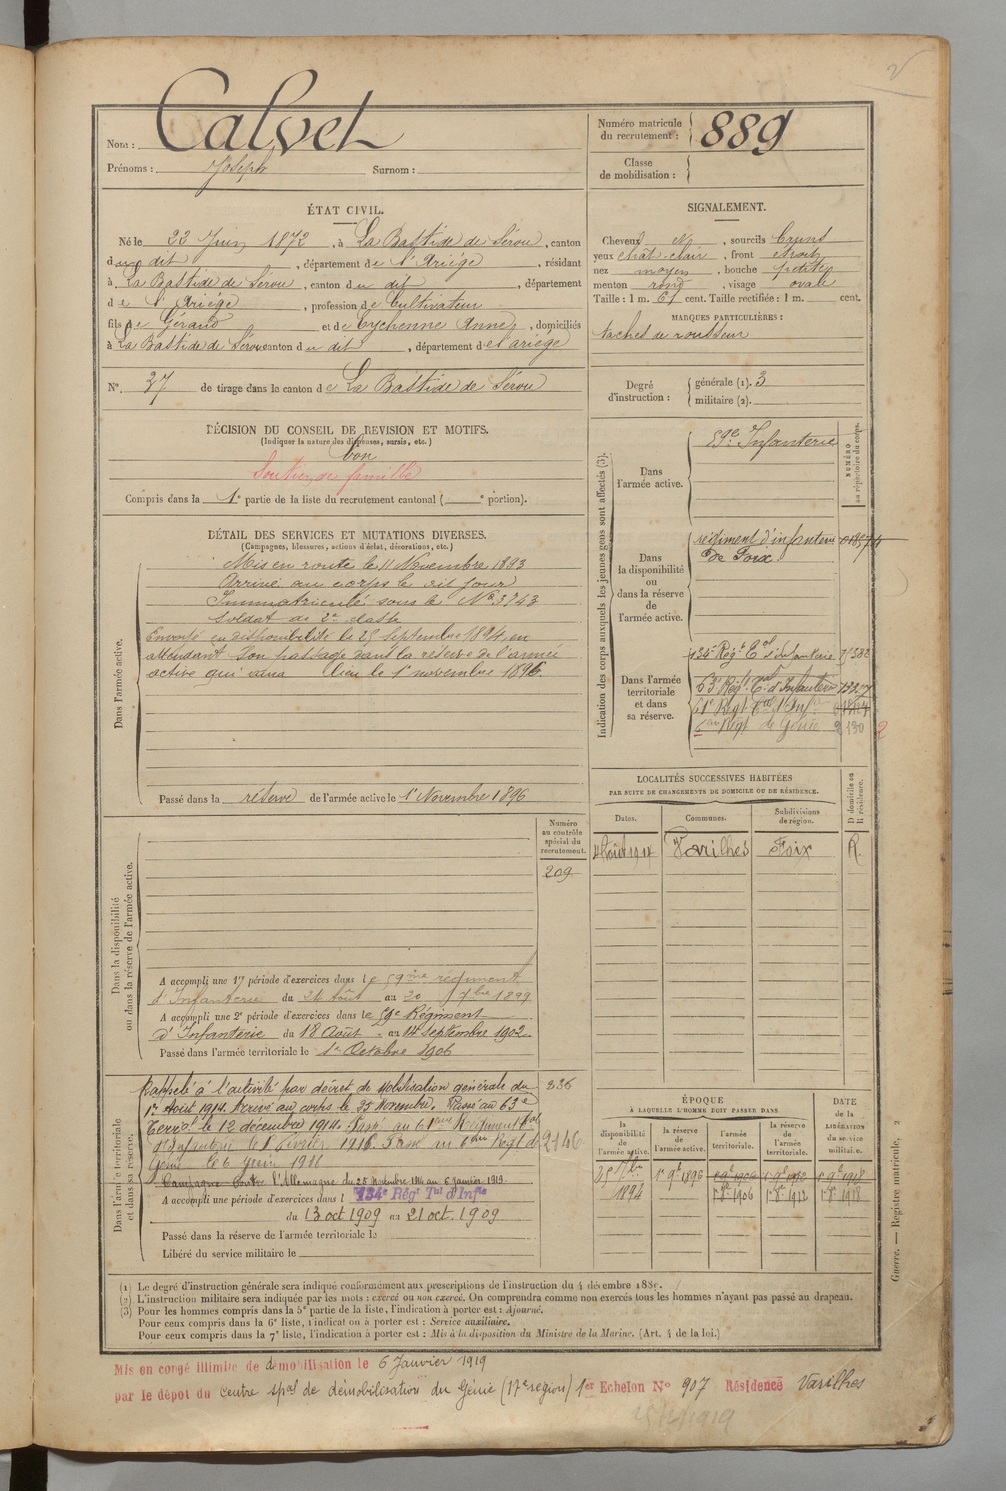 Nom : Calvet
Prénoms : Joseph Surnom :
Numéro matricule du recrutement : 889
Classe de mobilisation :
ÉTAT CIVIL.
Né le 22 Juin 1872, à La Bastide de Sérou, canton
du dit, département de l'Ariège, résidant
à La Bastide de Sérou, canton du dit, département
de l'Ariège, profession de Cultivateur
fils de Géraud et de Eychenne Anne, domiciliés
à La Bastide de Sérou canton du dit, département de l'ariège
N° 37 de tirage dans le canton de La Bastide de Sérou
SIGNALEMENT.
Cheveux N, sourcils bruns
yeux chât-clair, front étroit
nez moyen, bouche petite
menton rond, visage ovale
Taille : 1 m. 61 cent. Taille rectifiée : 1 m. cent.
MARQUES PARTICULIÈRES :
taches de rousseur
Degré d'instruction : générale (1). 3
militaire (2).
DÉCISION DU CONSEIL DE REVISION ET MOTIFS.
(Indiquer la nature des dispenses, sursis, etc.)
bon
Soutien de famille
Compris dans la 1e partie de la liste du recrutement cantonal ( e portion).
DÉTAIL DES SERVICES ET MUTATIONS DIVERSES.
(Campagnes, blessures, actions d'éclat, décorations, etc.)
Dans l'armée active.
Mis en route le 11 Novembre 1893
Arrivé au corps le dit jour
Immatriculé sous le N° 3743
Soldat de 2e classe
Envoyé en disponibilité le 25 Septembre 1894, en
attendant son passage dans la réserve de l'armée
active qui aura lieu le 1 novembre 1896.
Passé dans la réserve de l'armée active le 1er Novembre 1896
Indication des corps auxquels les jeunes gens sont affectés (3).
NUMÉRO au répertoire du corps.
Dans l'armée active.
59e Infanterie
Dans la disponibilité ou dans la réserve de l'armée active.
régiment d'infanterie
de Foix
Dans l'armée territoriale et dans sa réserve.
134e Régt Tal d'Infanterie
63e Régt Tal d'Infanterie
61e Régt Tal d'Infie
6me Régt de Génie 2130
2
LOCALITÉS SUCCESSIVES HABITÉES
PAR SUITE DE CHANGEMENTS DE DOMICILE OU DE RÉSIDENCE.
Dates. Communes. Subdivisions de région. D domicile ou R résidence.
4 Août 1914 Varilhes Foix R.
Numéro au contrôle spécial du recrutement.
209
Dans la disponibilité ou dans la réserve de l'armée active.
A accompli une 1re période d'exercices dans le 59me régiment
d'Infanterie du 24 août au 20 7bre 1899
A accompli une 2e période d'exercices dans le 59e Régiment
d'Infanterie du 18 Août au 14 septembre 1902
Passé dans l'armée territoriale le 1er Octobre 1906
Dans l'armée territoriale et dans sa réserve.
Rappelé à l'activité par décret de Mobilisation générale du
1er Août 1914. Arrivé au corps le 25 Novembre. Passé au 63e
Terral le 12 décembre 1914. Passé au 61ème Régiment Tal
d'Infanterie le 1 février 1916. Passé au 6ème Regt de
Génie le 6 juin 1916
Campagne Contre l'Allemagne du 25 Novembre 1914 au 6 janvier 1919.
336
2146
A accompli une période d'exercices dans l 134e Régt Tal d'Infie
du 13 oct 1909 au 21 oct. 1909
Passé dans la réserve de l'armée territoriale le
Libéré du service militaire le
ÉPOQUE
À LAQUELLE L'HOMME DOIT PASSER DANS
DATE de la LIBÉRATION du service militaire.
la disponibilité de l'armée active. la réserve de l'armée active. l'armée territoriale. la réserve de l'armée territoriale.
25 7bre 1894 1er 9bre 1896 1er 9bre 1906 1er 9bre 1912 1er 9bre 1918
1er 8bre 1906 1er 8bre 1912 1er 8bre 1918
(1) Le degré d'instruction générale sera indiqué conformément aux prescriptions de l'instruction du 4 décembre 1889.
(2) L'instruction militaire sera indiquée par les mots : exercé ou non exercé. On comprendra comme non exercés tous les hommes n'ayant pas passé au drapeau.
(3) Pour les hommes compris dans la 5e partie de la liste, l'indication à porter est : Ajourné.
Pour ceux compris dans la 6e liste, l'indication à porter est : Service auxiliaire.
Pour ceux compris dans la 7e liste, l'indication à porter est : Mis à la disposition du Ministre de la Marine. (Art. 4 de la loi.)
Guerre. — Registre matricule. 2
Mis en congé illimité de démobilisation le 6 Janvier 1919
par le dépôt du Centre spal de démobilisation du Génie (17e région) 1er Echelon N° 907 Résidence Varilhes